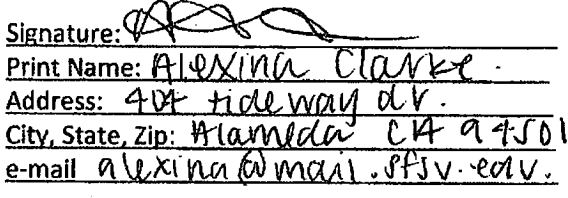 Signature:
Print Name: Alexina Clarke.
Address: 404 tideway dr.
City, State, Zip: Alameda CA 94501
e-mail alexina@mail.sfsu.edu.